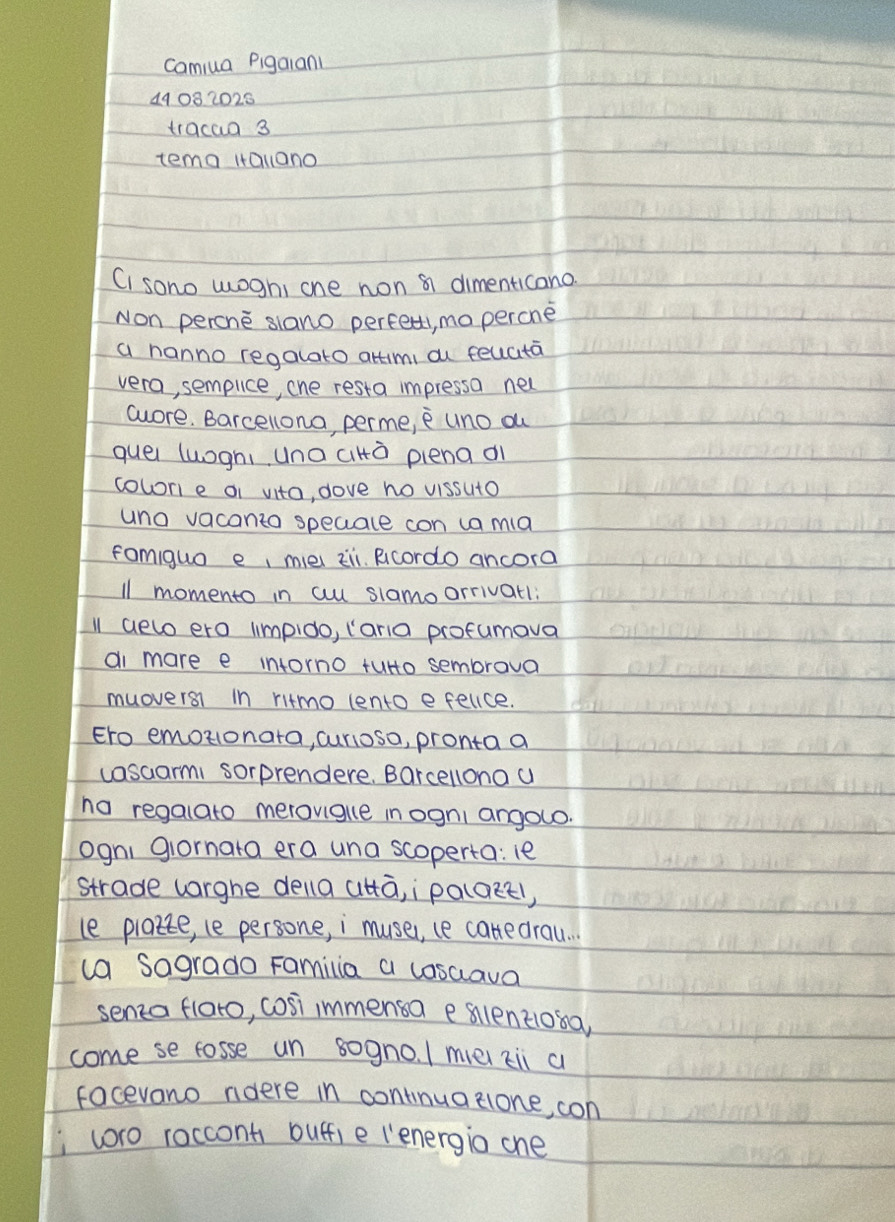 Camilla Pigaiani
11 08 2025
traccia 3
tema italiano
Ci sono luoghi che non si dimenticano.
Non perchè siano perfetti, ma perchè
ci hanno regalato attimi di felicità
vera, semplice, che resta impressa nel
cuore. Barcellona, per me, è uno di
quei luoghi. Una città piena di
colori e di vita, dove ho vissuto
una vacanza speciale con la mia
famiglia e i miei zii. Ricordo ancora
il momento in cui siamo arrivati:
il cielo era limpido, l'aria profumava
di mare e intorno tutto sembrava
muoversi in ritmo lento e felice.
Ero emozionata, curiosa, pronta a
lasciarmi sorprendere. Barcellona ci
ha regalato meraviglie in ogni angolo.
ogni giornata era una scoperta: le
strade larghe della città, i palazzi,
le piazze, le persone, i musei, le cattedrali...
la Sagrada Familia ci lasciava
senza fiato, così immensa e silenziosa,
come se fosse un sogno. I miei zii ci
facevano ridere in continuazione, con
i loro racconti buffi e l'energia che